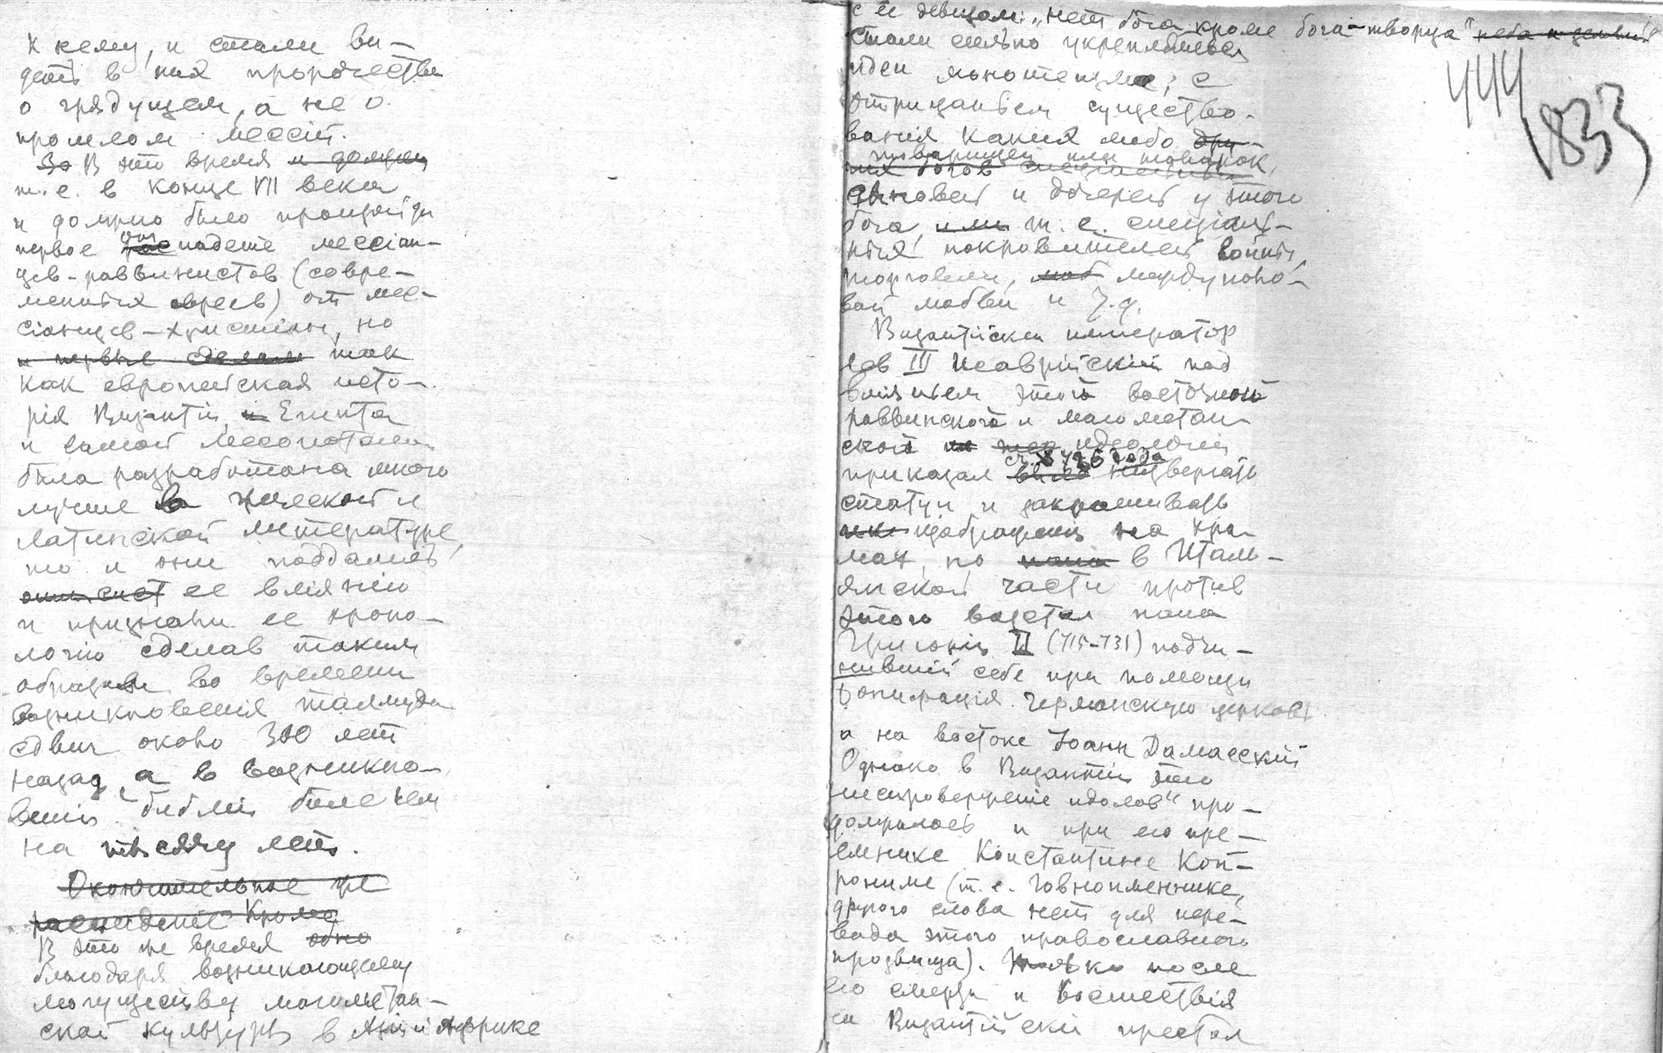 к нему, и стали ви-
деть в них пророчества
о грядущем, а не о
прошлом мессии.
За В это время и должен
т.е. в конце VII века
и должно было произойти
первое рас от падение мессиан-
цев-раввинистов (совре-
менных евреев) от мес-
сианцев-христиан, но
и первые сделали так
как европейская исто-
рія Византіи, и Египта
и самой Месопотаміи
была разработана много
лучше в греческой и
латинской литературе,
то и они поддались
ее вліянію
и признали ее хроно-
логію сделав таким
образом во времени
возникновения талмуда
сдвиг около 300 лет
назад, а в возникно-
веніи библіи более чем
на тысячу лет.
Окончательное
распадение Кроме
В это же время одно
благодаря возникающему
могуществу магометан-
ской культуры в Азіи и Африке
с ее девизом: „нет бога кроме бога-творца" неба и земли
стали сильно укрепляться
идеи монотеизма; с
отрицаньем существо-
вания каких либо дру-
товарищей или товарок,
гих богов
сыновей и дочерей у этого
бога, или т.е. спеціаль-
ных покровителей войны,
торговли, люб междуполо-
вой любви и т.д.
444
1833
Византійский император
Лев III Исаврійскій под
вліяньем этой восточной
раввинской и магометан-
ской идеологіи
приказал с 726 года низвергать
статуи и закрашивать
ико изображения на хра-
мах, но папа в Италь-
янской части против
этого восстал папа
Григорій II (715-731) подчи-
нившій себе при помощи
Бонифация германскую церковь
а на востоке Іоанн Дамаскій
Однако в Византіи это
„ниспровержение идолов" про-
должалось и при его пре-
емнике Константине Коп-
рониме (т.е. Говноименнике,
другого слова нет для пере-
вода этого православного
прозвища). Только после
его смерти и восшествія
на Византійскій престол